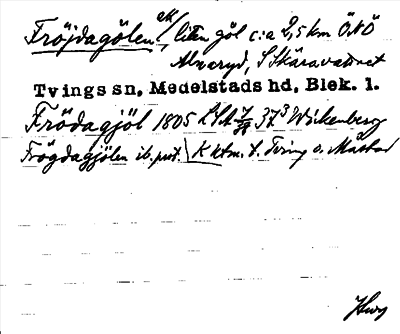 Fröjdagölen, ek, liten göl c:a 2,5 km ÖNÖ
Alnaryd, S Skäravattnet
Tvings sn, Medelstads hd, Blek. l.
Frödagjöl 1805 37³ Wickenberg
Frögdagjölen ib. prot. K ktm. t. Tving o. Måstad